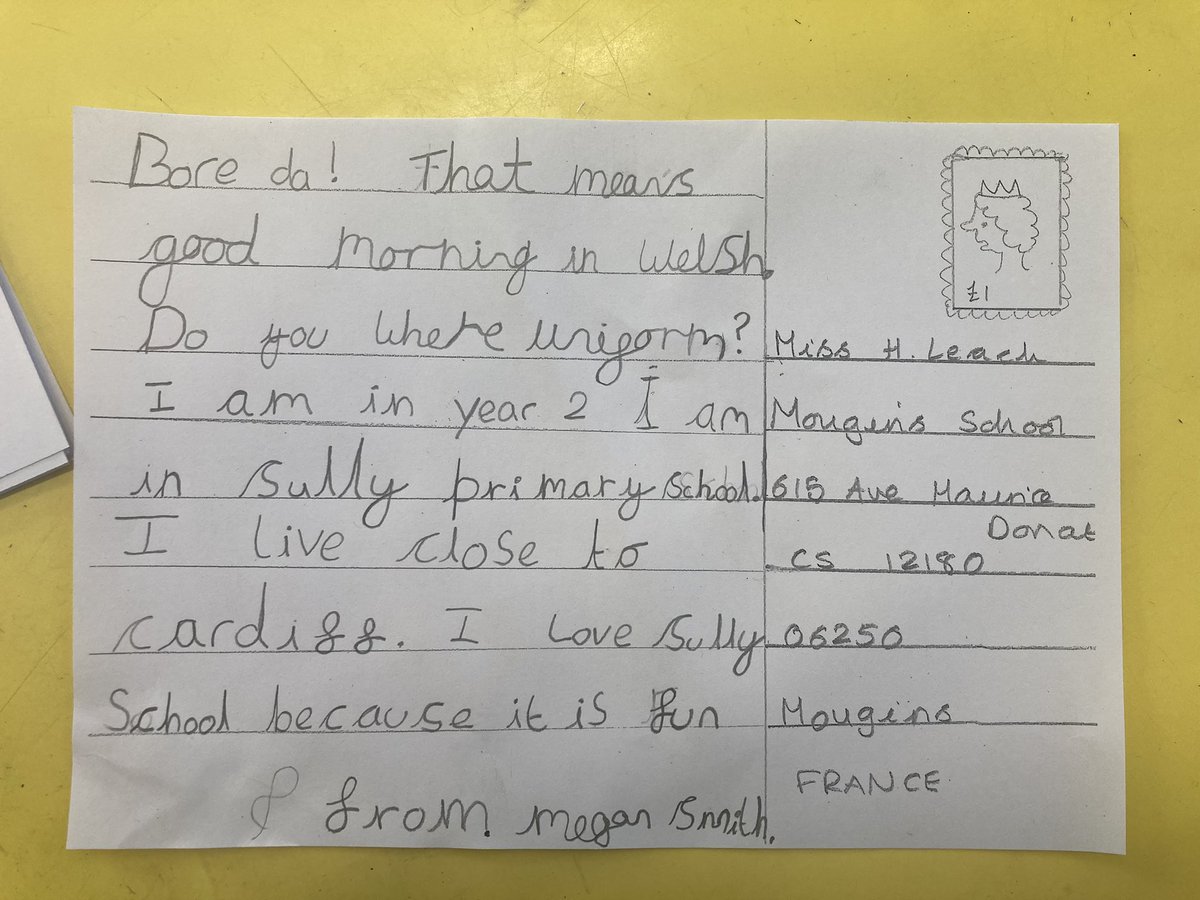 Bore da! That means
good morning in Welsh.
Do you where uniform?
I am in year 2 I am
in Sully primary School.
I live close to
cardiff. I Love Sully
School because it is fun
from megan Smith.
£1
Miss H. Leach
Mougins School
615 Ave Maurice
Donat
CS 12180
06250
Mougins
FRANCE